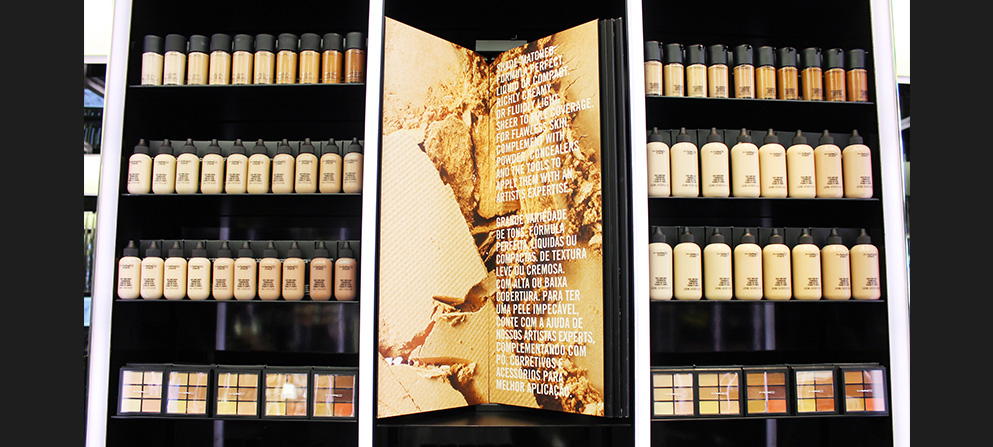 SHADE-MATCHED.
FORMULA PERFECT.
LIQUID OR COMPACT.
RICHLY CREAMY
OR FLUIDLY LIGHT.
SHEER TO FULL COVERAGE.
FOR FLAWLESS SKIN,
COMPLEMENT WITH
POWDER, CONCEALERS
AND THE TOOLS TO
APPLY THEM WITH AN
ARTIST'S EXPERTISE.
GRANDE VARIEDADE
DE TONS. FÓRMULA
PERFEITA. LÍQUIDAS OU
COMPACTAS. DE TEXTURA
LEVE OU CREMOSA.
COM ALTA OU BAIXA
COBERTURA. PARA TER
UMA PELE IMPECÁVEL,
CONTE COM A AJUDA DE
NOSSOS ARTISTAS EXPERTS,
COMPLEMENTANDO COM
PÓ, CORRETIVOS E
ACESSÓRIOS PARA
MELHOR APLICAÇÃO.